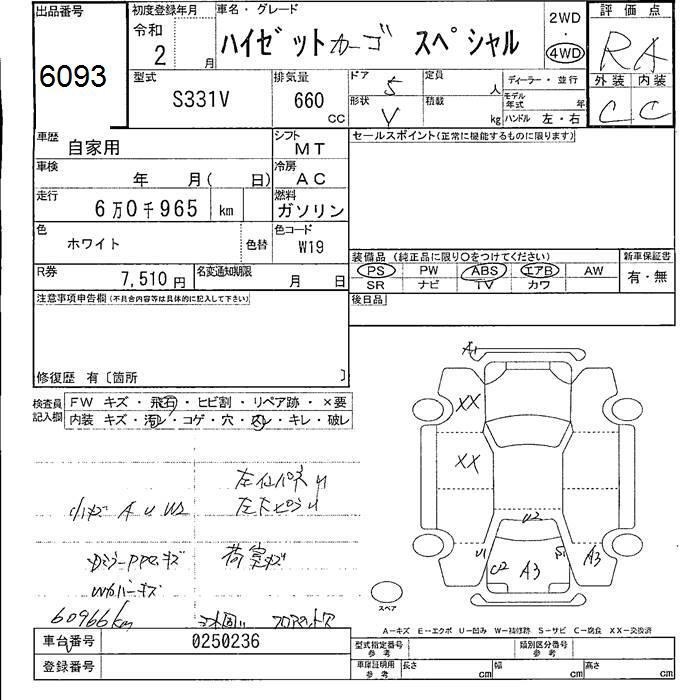 出品番号
6093
初度登録年月
令和
2 月
車名・グレード
ハイゼットカーゴ スペシャル
2WD
・
4WD
評価点
RA
型式
S331V
排気量
660
CC
ドア
5
形状
V
定員
人
積載
kg
ディーラー・並行
モデル
年式 年
ハンドル 左・右
外装 内装
C C
車歴
自家用
シフト
MT
セールスポイント(正常に機能するものに限ります)
車検
年 月( 日)
冷房
AC
走行
6万0千965 km
燃料
ガソリン
色
ホワイト
色替
色コード
W19
装備品(純正品に限り○をつけてください)
新車保証書
PS PW ABS エアB AW
有・無
SR ナビ TV カワ
R券
7,510 円
名変通知期限
月 日
後日品
注意事項申告欄(不具合内容等は具体的に記入して下さい)
修復歴 有〔箇所 〕
検査員
記入欄
FW キズ・飛石・ヒビ割・リペア跡・×要
内装 キズ・汚レ・コゲ・穴・・キレ・破レ
A1
XX
XX
U2
U1
S1
C2
A3
A3
A U W2
荷室キズ
60966km
スペア
A－キズ E－エクボ U－凹み W－補修跡 S－サビ C－腐食 XX－交換済
車台番号
0250236
登録番号
型式指定番号
参考
類別区分番号
参考
車庫証明用
参考
長さ cm
幅 cm
高さ cm